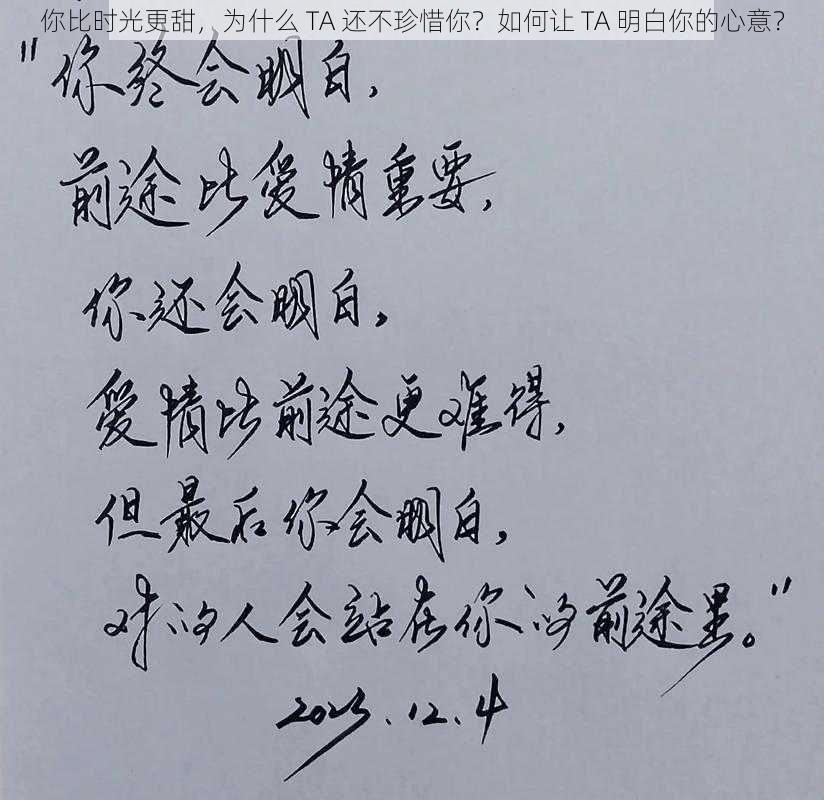 你比时光更甜，为什么 TA 还不珍惜你？如何让 TA 明白你的心意？
"你终会明白，
前途比爱情重要，
你还会明白。
爱情比前途更难得，
但最后你会明白，
对的人会站在你的前途里。"
2023.12.4